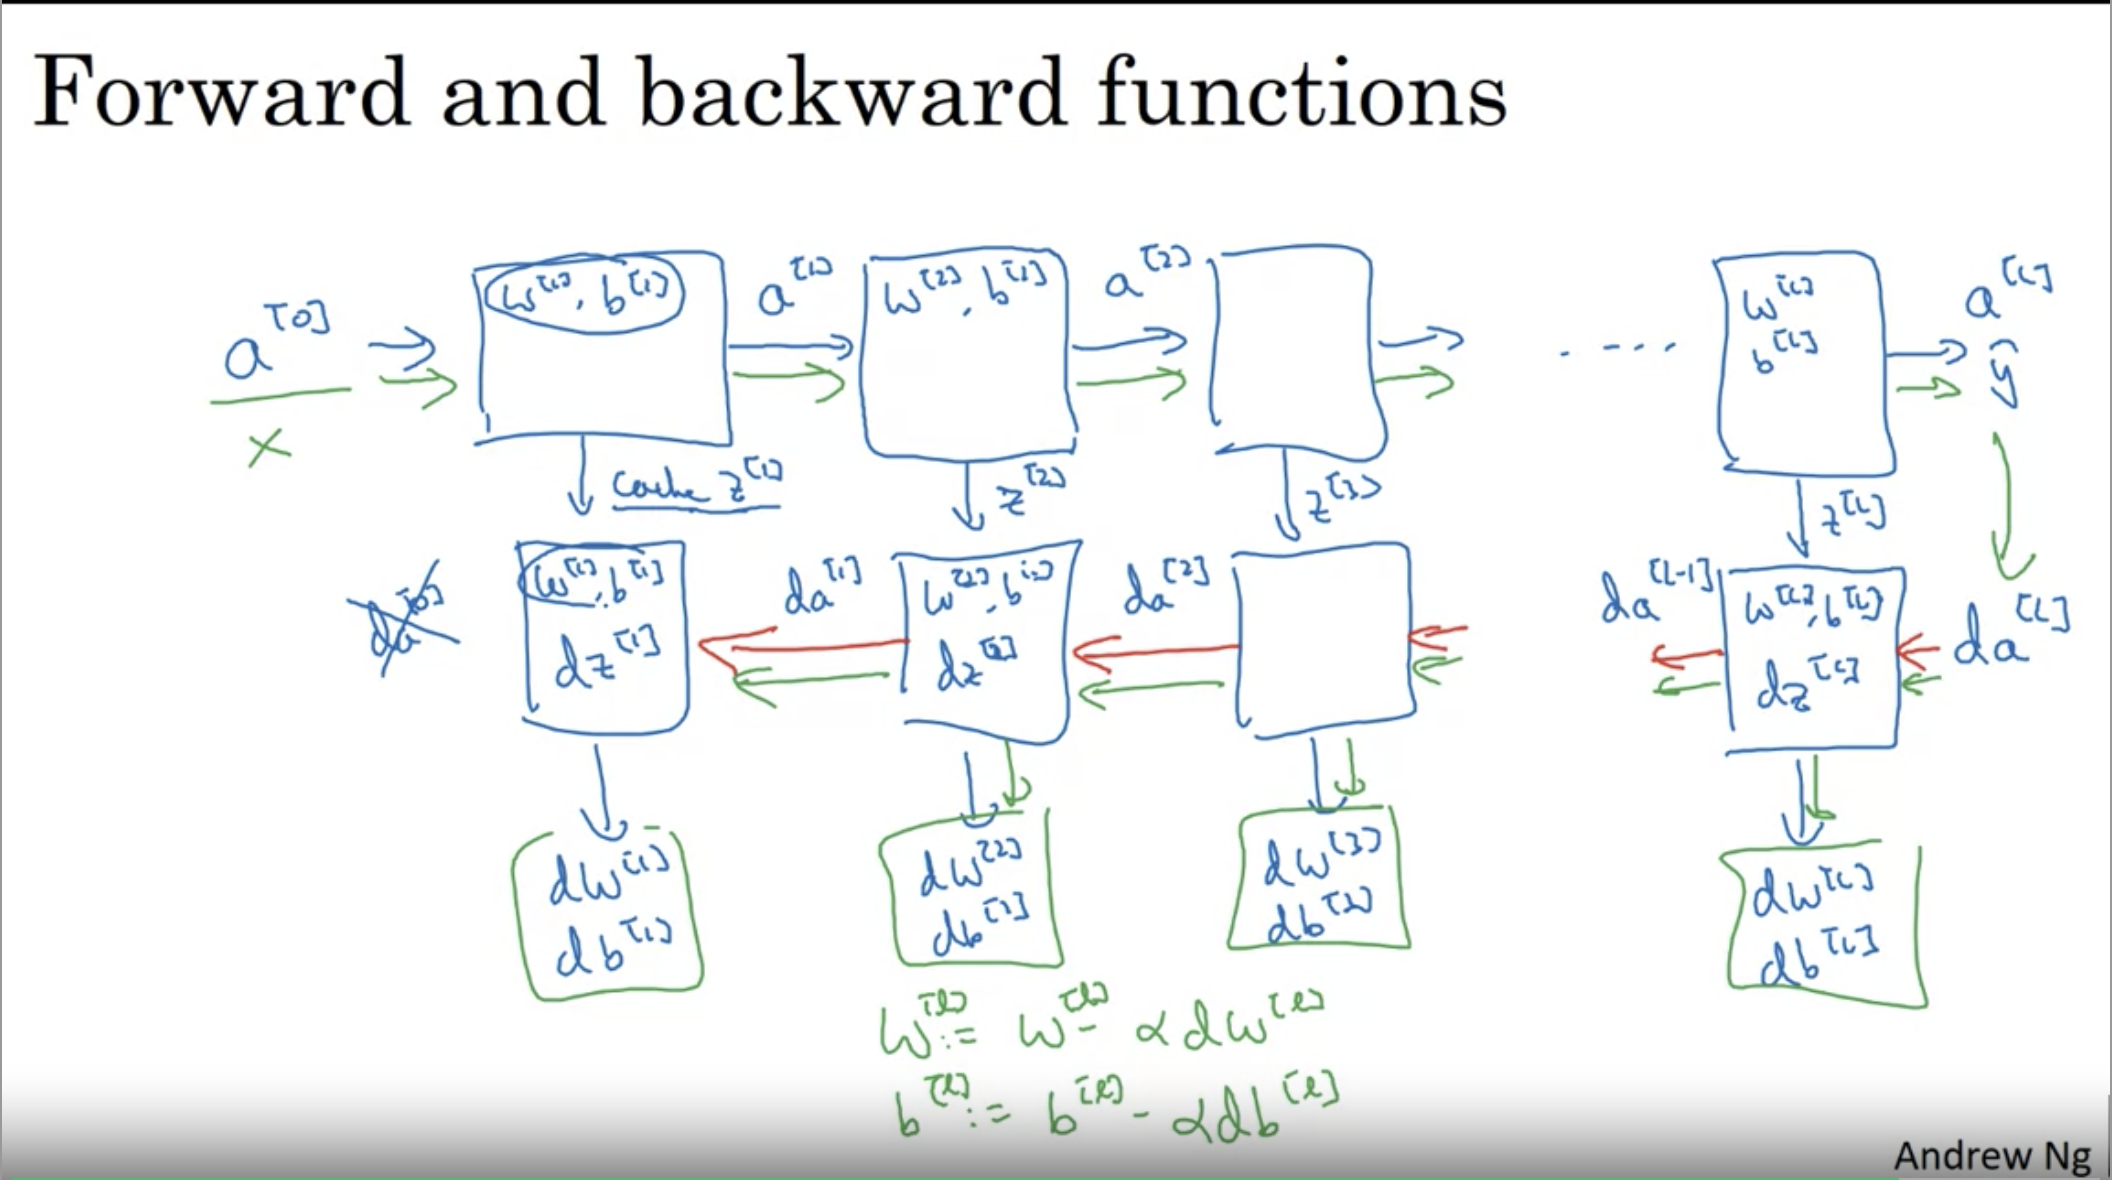 Forward and backward functions
a^[0] → w^[1], b^[1] a^[1] → w^[2], b^[2] a^[2] → → .... w^[L] → a^[L]
x b^[L] ŷ
cache z^[1] z^[2] z^[3] z^[L]
da^[0] w^[1], b^[1] da^[1] w^[2], b^[2] da^[2] da^[L-1] w^[L], b^[L] da^[L]
dz^[1] dz^[2] dz^[L]
dw^[1] dw^[2] dw^[3] dw^[L]
db^[1] db^[2] db^[3] db^[L]
w^[l] := w^[l] - αdw^[l]
b^[l] := b^[l] - αdb^[l]
Andrew Ng